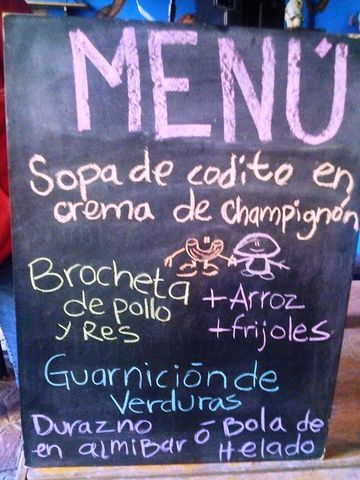 MENÚ
Sopa de codito en
crema de champignón
Brocheta
de pollo
y Res
+Arroz
+frijoles
Guarnición de
Verduras
Durazno
en almibar
ó
Bola de
Helado